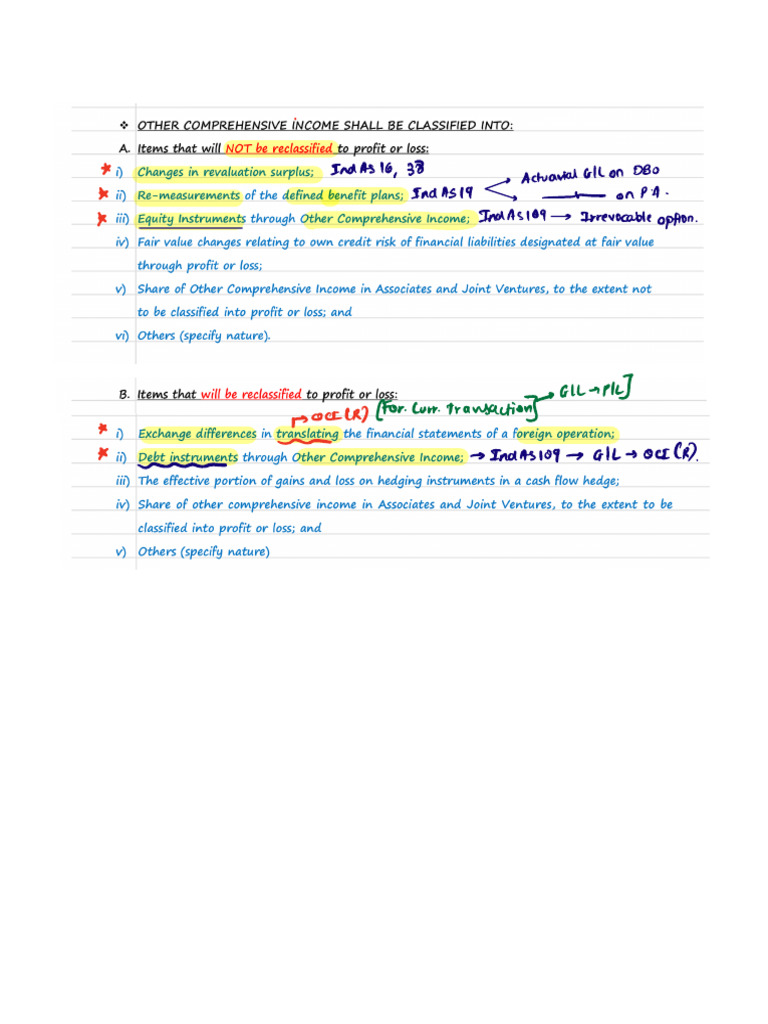 ❖ OTHER COMPREHENSIVE INCOME SHALL BE CLASSIFIED INTO:
A. Items that will NOT be reclassified to profit or loss:
i) Changes in revaluation surplus; Ind AS 16, 38
Actuarial G/L on DBO
ii) Re-measurements of the defined benefit plans; Ind AS 19
on PA.
iii) Equity Instruments through Other Comprehensive Income; Ind AS 109 → Irrevocable option.
iv) Fair value changes relating to own credit risk of financial liabilities designated at fair value
through profit or loss;
v) Share of Other Comprehensive Income in Associates and Joint Ventures, to the extent not
to be classified into profit or loss; and
vi) Others (specify nature).
B. Items that will be reclassified to profit or loss:
→ OCI (R) [For. Curr. Transaction] → G/L → P/L]
i) Exchange differences in translating the financial statements of a foreign operation;
ii) Debt instruments through Other Comprehensive Income; → Ind AS 109 → G/L → OCI (R).
iii) The effective portion of gains and loss on hedging instruments in a cash flow hedge;
iv) Share of other comprehensive income in Associates and Joint Ventures, to the extent to be
classified into profit or loss; and
v) Others (specify nature)